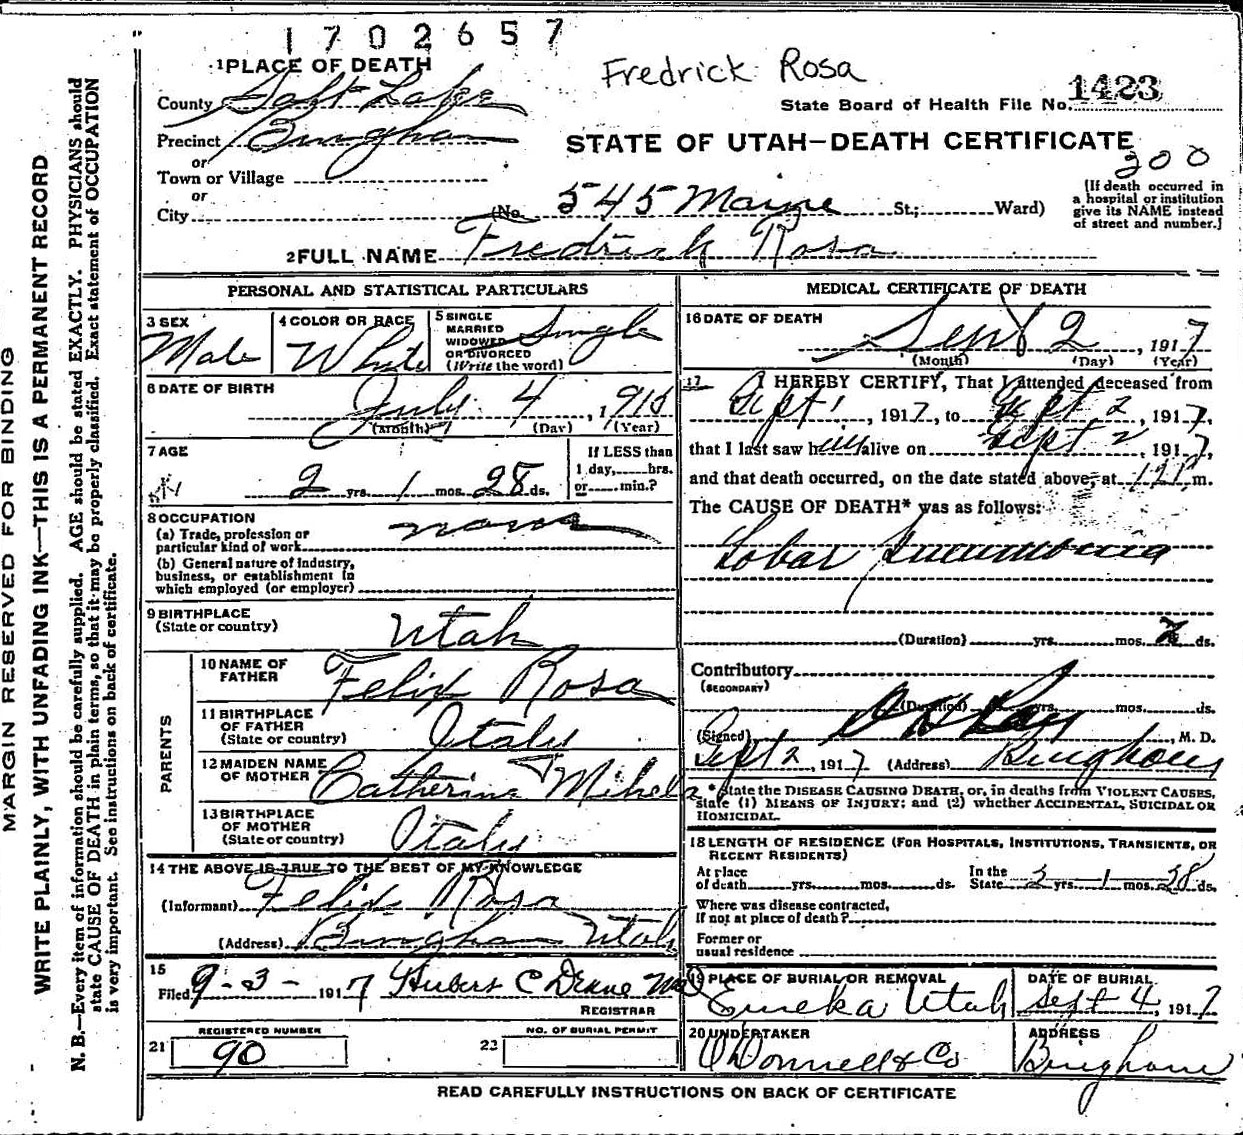 1702657
Fredrick Rosa
1 PLACE OF DEATH
County Salt Lake
State Board of Health File No. 1423
Precinct Bingham
STATE OF UTAH—DEATH CERTIFICATE
or
Town or Village
200
or
City (No. 545 Maine St.; Ward)
[If death occurred in
a hospital or institution
give its NAME instead
of street and number.]
2 FULL NAME Fredrick Rosa
PERSONAL AND STATISTICAL PARTICULARS
3 SEX
Male
4 COLOR OR RACE
White
5 SINGLE
MARRIED
WIDOWED
OR DIVORCED
(Write the word)
Single
6 DATE OF BIRTH
July 4, 1915
(Month) (Day) (Year)
7 AGE
2 yrs. 1 mos. 28 ds.
If LESS than
1 day, hrs.
or min.?
8 OCCUPATION
(a) Trade, profession or
particular kind of work
none
(b) General nature of Industry,
business, or establishment in
which employed (or employer)
9 BIRTHPLACE
(State or country)
Utah
PARENTS
10 NAME OF
FATHER
Felix Rosa
11 BIRTHPLACE
OF FATHER
(State or country)
Italy
12 MAIDEN NAME
OF MOTHER
Catherine Mihela
13 BIRTHPLACE
OF MOTHER
(State or country)
Italy
14 THE ABOVE IS TRUE TO THE BEST OF MY KNOWLEDGE
(Informant) Felix Rosa
(Address) Bingham Utah
15
Filed 9-3-1917 Hubert C
REGISTRAR
REGISTERED NUMBER
21 90
NO. OF BURIAL PERMIT
22
MEDICAL CERTIFICATE OF DEATH
16 DATE OF DEATH
Sept 2, 1917
(Month) (Day) (Year)
17 I HEREBY CERTIFY, That I attended deceased from
Sept 1, 1917, to Sept 2, 1917,
that I last saw him alive on Sept 2, 1917,
and that death occurred, on the date stated above, at m.
The CAUSE OF DEATH* was as follows:
Lobar Pneumonia
(Duration) yrs. mos. 2 ds.
Contributory
(SECONDARY)
(Duration) yrs. mos. ds.
(Signed) , M. D.
Sept 2, 1917 (Address) Bingham
* State the DISEASE CAUSING DEATH, or, in deaths from VIOLENT CAUSES,
state (1) MEANS OF INJURY; and (2) whether ACCIDENTAL, SUICIDAL OR
HOMICIDAL.
18 LENGTH OF RESIDENCE (FOR HOSPITALS, INSTITUTIONS, TRANSIENTS, OR
RECENT RESIDENTS)
At place
of death yrs. mos. ds.
In the
State 2 yrs. 1 mos. 28 ds.
Where was disease contracted,
If not at place of death?
Former or
usual residence
19 PLACE OF BURIAL OR REMOVAL
Eureka Utah
DATE OF BURIAL
Sept 4, 1917
20 UNDERTAKER
O'Donnell & Co
ADDRESS
Bingham
READ CAREFULLY INSTRUCTIONS ON BACK OF CERTIFICATE
MARGIN RESERVED FOR BINDING
WRITE PLAINLY, WITH UNFADING INK—THIS IS A PERMANENT RECORD
N. B.—Every item of information should be carefully supplied. AGE should be stated EXACTLY. PHYSICIANS should
state CAUSE OF DEATH in plain terms, so that it may be properly classified. Exact statement of OCCUPATION
is very important. See instructions on back of certificate.